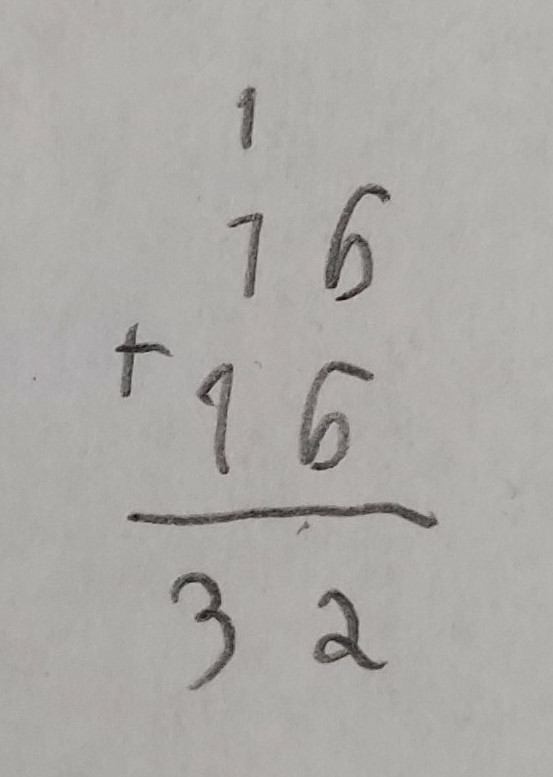 1
16
+ 16
32